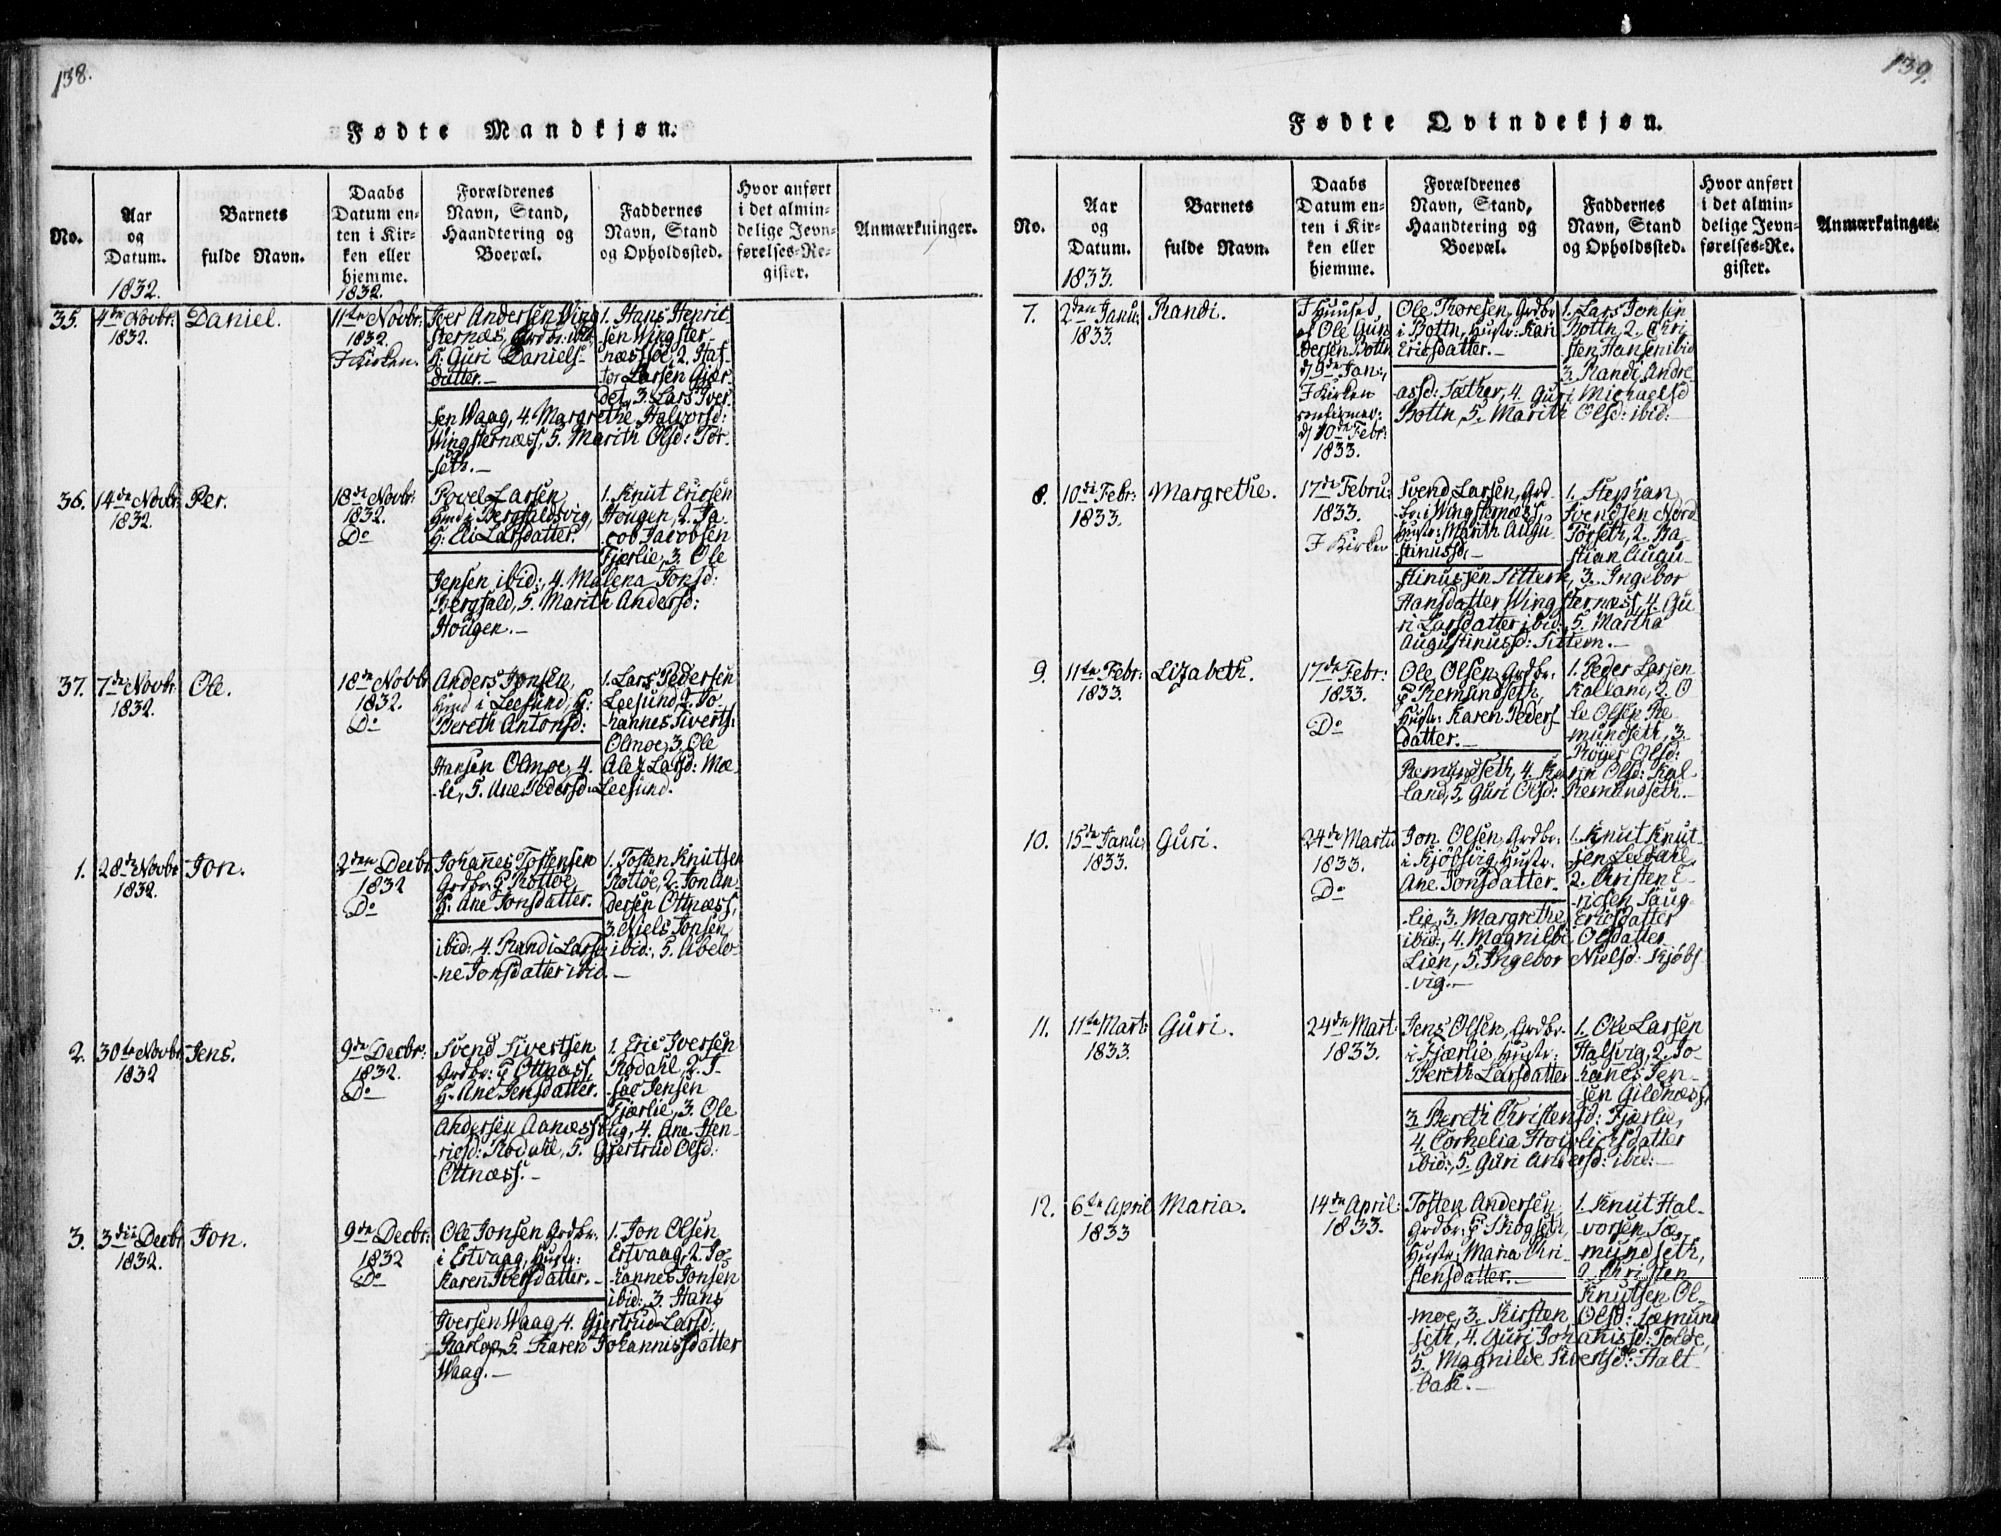 138.
Fødte Mandkjøn.
No.
Aar
og
Datum.
1832.
Barnets
fulde Navn.
Daabs
Datum en-
ten i Kir-
ken eller
hjemme.
1832.
Forældrenes
Navn, Stand,
Haandtering og
Boepæl.
Faddernes
Navn, Stand
og Opholdssted.
Hvor anført
i det almin-
delige Jevn-
førelses-Re-
gister.
Anmærkninger.
35.
4de Novbr:
1832.
Daniel.
11te Novbr:
1832.
I Kirken.
Iver Andersen Wing
sternæs, Grdbr: ibid,
H: Guri Daniels-
datter.-
1. Hans Henric-
sen Wingster-
næssøe, 2. Haf-
tor Larsen Giær-
det, 3. Lars Iver-
sen Waag, 4. Margrethe Halvorsd:
Wingsternæss, 5. Marith Olsd: Tør-
seth.-
36.
14de Novbr:
1832.
Per.
18de Novbr:
1832.
Do
Povel Larsen,
Hmd i Bergfaldsvig,
H: Eli Larsdatter.
1. Knut Ericsen
Hougen, 2. Ja-
cob Jacobsen
Fjærlie, 3. Ole
Jensen ibid:, 4. Malena Jonsd:
Bergfald, 5. Marith Andersd:
Hougen.-
37.
7de Novbr
1832.
Ole.
18de Novbr
1832.
Do
Anders Jonsen,
Hmd i Leesund, H:
Bereth Antonsd:
1. Lars Pedersen
Leesund, 2. Jo-
hannes Siverts:
Olmoe, 3. Ole
Hansen Olmoe, 4. Ale Larsd: Mæ-
le, 5. Ane Pedersd: Leesund.
1.
28de Novbr
1832.
Jon.
2den Decbr
1832
Do
Johanes Tostensen
Grdbr: P Rottøe
H: Ane Jonsdatter.
1. Tosten Knutsen
Rottøe, 2. Jon An-
dersen Ottnæss,
3. Niels Jonsen
ibid:, 4. Randi Larsd: ibid:, 5. Abelo-
ne Jonsdatter ibid.-
2.
30te Novbr
1832
Jens.
9de Decbr:
1832.
Do
Svend Sivertsen
Grdbr: P Ottnæss,
H: Ane Jensdatter.
1. Eric Iversen
Rødahl, 2. I-
sac Jensen
Fjærlie, 3. Ole
Andersen Aanæsslig, 4. Ane Hen-
ricsd: Rødahl, 5. Gjertrud Olsd:
Ottnæss.-
3.
3die Decbr
1832.
Jon.
9de Decbr:
1832
Do
Ole Jonsen Grdbr:
i Ertvaag, Hustr:
Karen Iversdatter.-
1. Jon Olsen
Ertvaag, 2. Jo-
hannes Jonsen
ibid:, 3. Hans
Iversen Waag, 4. Gjertrud Larsd:
5. Karen Johannisdatter
Waag.-
139.
Fødte Qvindekjøn.
No.
Aar
og
Datum.
1833.
Barnets
fulde Navn.
Daabs
Datum en-
ten i Kir-
ken eller
hjemme.
Forældrenes
Navn, Stand,
Haandtering og
Boepæl.
Faddernes
Navn, Stand
og Opholdssted.
Hvor anført
i det almin-
delige Jevn-
førelses-Re-
gister.
Anmærkninger.
7.
2den Janu:
1833.
Randi.
I Huused
af Ole Gun
dersen Bottn
d/ 9de Jan:,
I Kirken
confirmer:
d/ 10de Febr:
1833.
Ole Thoresen, Grdbr
i Bottn, Hustr: Kari
Ericsdatter.-
1. Lars Jonsen
Bottn, 2. Chri
sten Hansen ibid
3. Randi Andre
assd: Sæther, 4. Guri Michaelsd
Bottn, 5. Marith Olsd: ibid:
8.
10de Febr:
1833.
Margrethe.
17de Febru:
1833.
I Kirken
Svend Larsen, Grd-
br: i Wingsternæss,
Hustr: Marith Augu-
stinusd,-
1. Stephan
Svendsen Nord
Tørseth, 2. Ba-
stian Augu-
stinussen Sittern, 3. Ingebor
Hansdatter Wingsternæss, 4. Gu
ri Larsdatter ibid: 5. Martha
Augustinussd: Sittern.-
9.
11te Febr:
1833.
Lizabeth.
17de Febr:
1833.
Do
Ole Olsen, Grdbr:
P Remundseth,
Hustr: Karen Peders-
datter.-
1. Peder Larsen
Kalland, 2. O
le Olsen Re-
mundseth, 3.
Røger Olsd:
Remundseth, 4. Karin Olsd: Kal-
land, 5. Guri Olsd: Remundseth.-
10.
15de Janu:
1833.
Guri.
24de Martii
1833.
Do
Jon Olsen, Grdbr:
i Kjøbsvig, Hustr:
Ane Jonsdatter.
1. Knut Knut-
sen Leedahl,
2. Christen E-
ricsen Saug-
lie, 3. Margrethe Ericsdatter
ibid:, 4. Magnilde Olsdatter
Lien, 5. Ingebor Nielsd: Kjøbs
vig.-
11.
11te Mart:
1833.
Guri.
24de Mart:
1833.
Jens Olsen, Grdbr.
i Fjærlie, Hustr:
Bereth Larsdatter
1. Ole Larsen
Halsvig, 2. Jo-
hanes Jen-
sen Gildnæss,
3. Bereth Christensd: Fjærlie,
4. Cornelia Hoislichsdatter
ibid:, 5. Guri Andersd: ibid:-
12.
6te April
1833
Maria.
14de April:
1833.
Tosten Andersen,
Grdbr: P Skogseth,
Hustr: Maria Chri-
stensdatter.-
1. Knut Hal-
vorsen Sæ-
mundseth,
2. Christen
Knutsen Ol-
moe, 3. Kirsten Olsd: Sæmund
seth, 4. Guri Johanisd: Tolde,
5. Magnilde Sivertsd: Halt-
bak.-